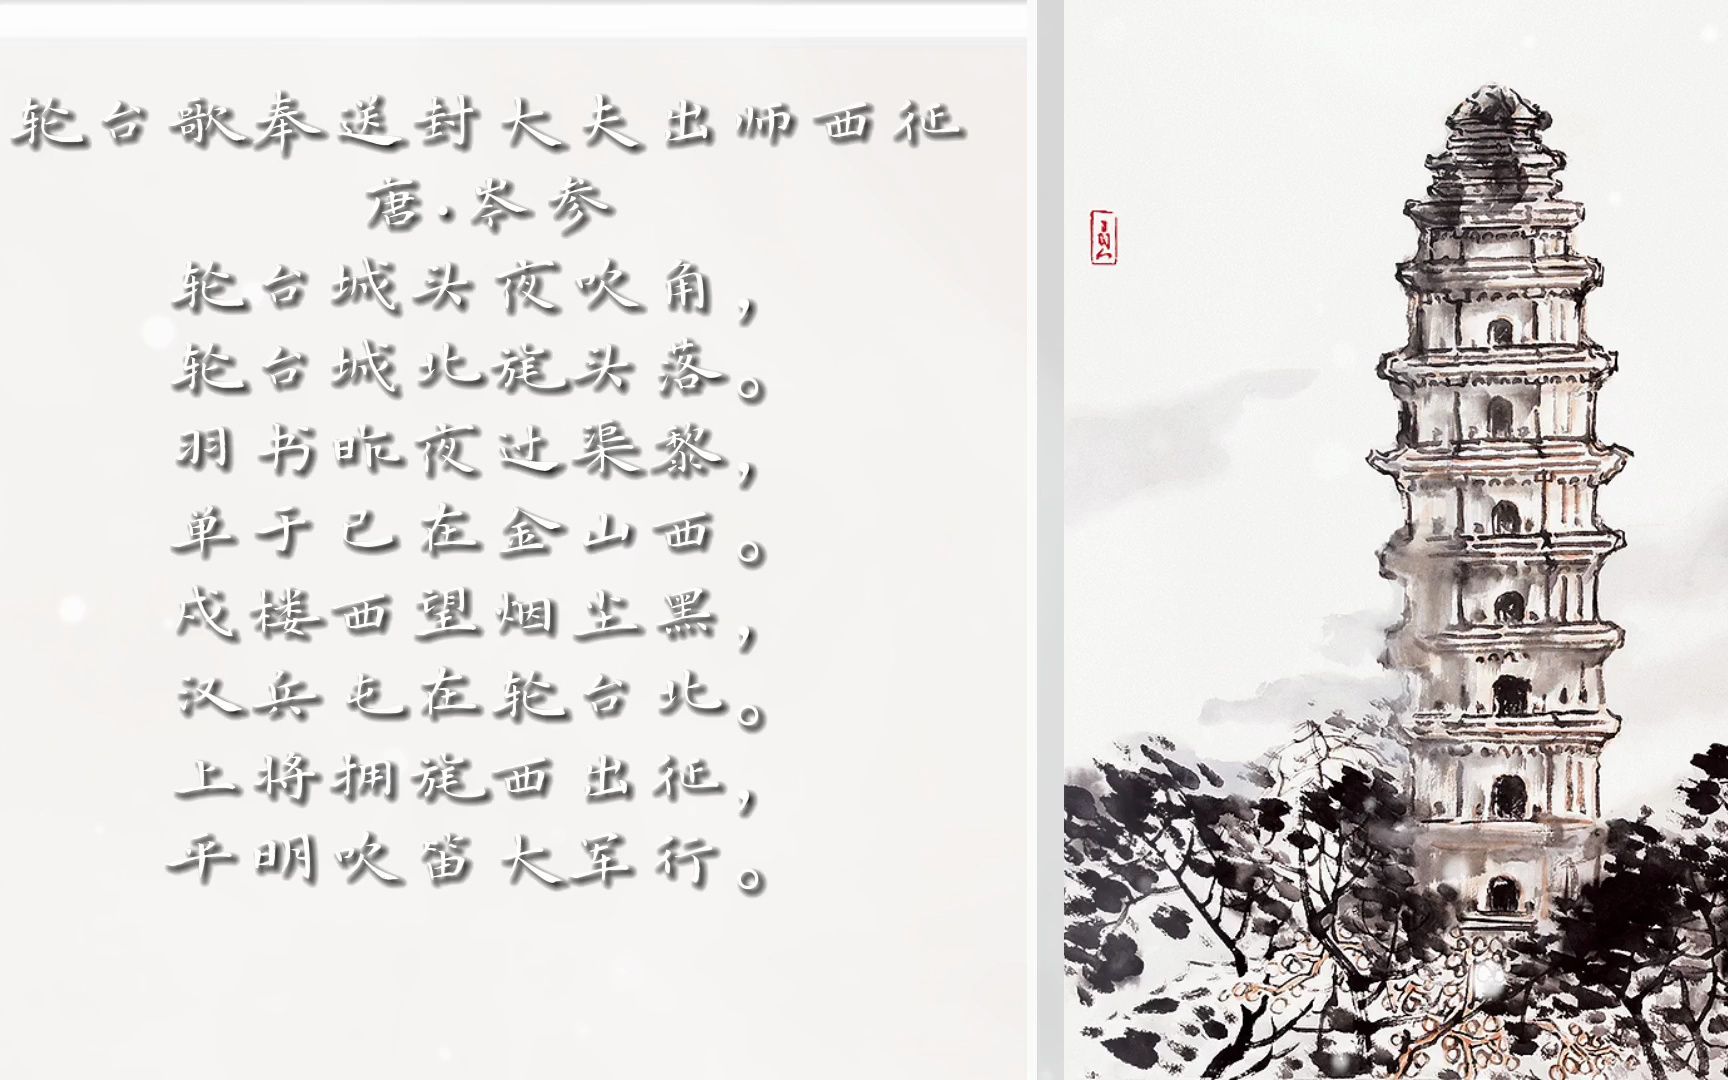 轮台歌奉送封大夫出师西征
唐·岑参
轮台城头夜吹角，
轮台城北旄头落。
羽书昨夜过渠黎，
单于已在金山西。
戍楼西望烟尘黑，
汉兵屯在轮台北。
上将拥旄西出征，
平明吹笛大军行。